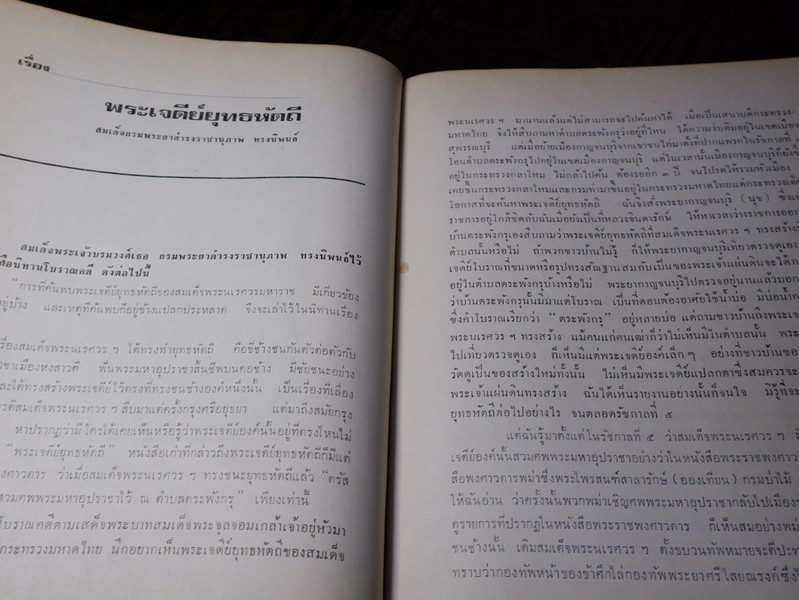 เรื่อง
พระเจดีย์ยุทธหัตถี
สมเด็จกรมพระยาดำรงราชานุภาพ ทรงนิพนธ์
สมเด็จพระเจ้าบรมวงศ์เธอ กรมพระยาดำรงราชานุภาพ ทรงนิพนธ์ไว้
สือนิทานโบราณคดี ดังต่อไปนี้
"การที่ค้นพบพระเจดีย์ยุทธหัตถีของสมเด็จพระนเรศวรมหาราช มีเกี่ยวข้อง
อยู่บ้าง และเหตุที่ค้นพบก็อยู่ข้างแปลกประหลาด จึงจะเล่าไว้ในนิทานเรื่อง
เรื่องสมเด็จพระนเรศวร ฯ ได้ทรงทำยุทธหัตถี คือขี่ช้างชนกันตัวต่อตัวกับ
ราชาเมืองหงสาวดี ฟันพระมหาอุปราชาสิ้นชีพบนคอช้าง มีชัยชนะอย่าง
ละได้ทรงสร้างพระเจดีย์ไว้ตรงที่ทรงชนช้างองค์หนึ่งนั้น เป็นเรื่องที่เลื่อง
รติสมเด็จพระนเรศวร ฯ สืบมาแต่ครั้งกรุงศรีอยุธยา แต่มาถึงสมัยกรุง
หาปรากฏว่ามีใครได้เคยเห็นหรือรู้ว่าพระเจดีย์องค์นั้นอยู่ที่ตรงไหนไม่
"พระเจดีย์ยุทธหัตถี" หนังสือเก่าที่กล่าวถึงพระเจดีย์ยุทธหัตถีก็มีแต่
งศาวดาร ว่าเมื่อสมเด็จพระนเรศวร ฯ ทรงชนะยุทธหัตถีแล้ว "ตรัส
สวมศพพระมหาอุปราชาไว้ ณ ตำบลตระพังกรุ" เพียงเท่านี้
บราณคดีตามเสด็จพระบาทสมเด็จพระจุลจอมเกล้าเจ้าอยู่หัวมา
กระทรวงมหาดไทย นึกอยากเห็นพระเจดีย์ยุทธหัตถีของสมเด็จ
พระนเรศวร ฯ มานานแล้วแต่ไม่สามารถจะไปค้นหาได้ เมื่อเป็นเสนาบดีกระทรวง-
มหาดไทย จึงให้สืบถามหาตำบลตระพังกรุว่าอยู่ที่ไหน ได้ความว่าเดิมอยู่ในเขตเมือง
สุพรรณบุรี แต่เมื่อย้ายเมืองกาญจนบุรีจากเขาชนไก่มาตั้งที่ปากแพรกในรัชกาลที่
โอนตำบลตระพังกรุไปอยู่ในเขตเมืองกาญจนบุรี แต่ในเวลานั้นเมืองกาญจนบุรีก็ยังขึ้
อยู่ในกระทรวงกลาโหม ไม่กล้าไปค้น ต้องรออีก ๓ ปี จนโปรดให้รวมหัวเมือง
เคยขึ้นกระทรวงกลาโหมและกรมท่ามาขึ้นอยู่ในกระทรวงมหาดไทยแต่กระทรวงเดี
โอกาสที่จะค้นหาพระเจดีย์ยุทธหัตถี ฉันจึงสั่งพระยากาญจนบุรี (นุช) ซึ่งเค
ราชการอยู่ใกล้ชิดกับฉันเมื่อยังเป็นที่หลวงจินดารักษ์ ให้หาเวลาว่างราชการออก
บ้านตระพังกรุเองสืบถามว่าพระเจดีย์ยุทธหัตถีที่สมเด็จพระนเรศวร ฯ ทรงสร้าง
ตำบลนั้นหรือไม่ ถ้าพวกชาวบ้านไม่รู้ ก็ให้พระยากาญจนบุรีเที่ยวตรวจดูเอง
เจดีย์โบราณที่ขนาดหรือรูปทรงสัณฐานสมกับเป็นของพระเจ้าแผ่นดินจะได้ท
อยู่ในตำบลตระพังกรุบ้างหรือไม่ พระยากาญจนบุรีไปตรวจอยู่นานแล้วบอก
ว่าบ้านตระพังกรุนั้นมีมาแต่โบราณ เป็นที่ดอนต้องอาศัยใช้น้ำบ่อ มีบ่อน้ำก
ซึ่งคำโบราณเรียกว่า "ตระพังกรุ" อยู่หลายบ่อ แต่ถามชาวบ้านถึงพระเจ
พระนเรศวร ฯ ทรงสร้าง แม้คนแก่คนเฒ่าก็ว่าไม่เห็นมีในตำบลนั้น พระ
ไปเที่ยวตรวจดูเอง ก็เห็นมีแต่พระเจดีย์องค์เล็ก ๆ อย่างที่ชาวบ้านชอบ
วัดดูเป็นของสร้างใหม่ทั้งนั้น ไม่เห็นมีพระเจดีย์แปลกตาซึ่งสมควรจะ
พระเจ้าแผ่นดินทรงสร้าง ฉันได้เห็นรายงานอย่างนั้นก็จนใจ มิรู้ที่จะ
ยุทธหัตถีต่อไปอย่างไร จนตลอดรัชกาลที่ ๕
แต่ฉันรู้มาตั้งแต่ในรัชกาลที่ ๕ ว่าสมเด็จพระนเรศวร ฯ มิ
เจดีย์องค์นั้นสวมศพพระมหาอุปราชาอย่างว่าในหนังสือพระราชพงศา
สือพงศาวดารพม่าซึ่งพระไพรสณฑ์สาลารักษ์ (อองเทียน) กรมป่าไม้
ให้ฉันอ่าน ว่าครั้งนั้นพวกพม่าเชิญศพพระมหาอุปราชากลับไปเมือง
ดูรายการที่ปรากฏในหนังสือพระราชพงศาวดาร ก็เห็นสมอย่างพม่
ชนช้างนั้น เดิมสมเด็จพระนเรศวร ฯ ตั้งขบวนทัพหมายจะตีปะท
ทราบว่ากองทัพหน้าของข้าศึกไล่กองทัพพระยาศรีไสยณรงค์ซึ่ง